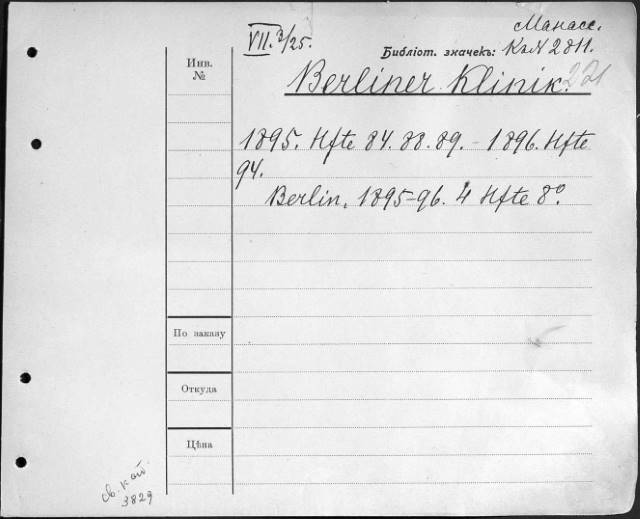 VII. 3/25.
Манасс.
Библіот. значекъ: К.№ 2811.
Инв. №
Berliner Klinik. 221
1895. Hfte 84. 88. 89. - 1896. Hfte
94.
Berlin, 1895-96. 4 Hfte 8°.
По заказу
Откуда
Цѣна
св. кат.
3829